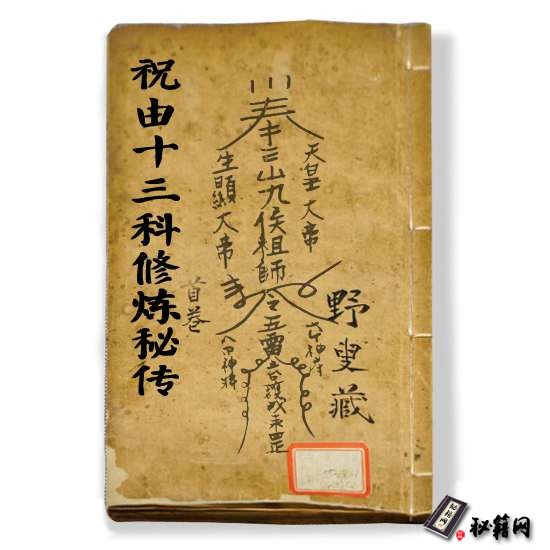 祝由十三科修炼秘传
天皇大帝
奉三山九侯祖師令五雷
生顕大帝
首卷
野叟藏
秘籍网